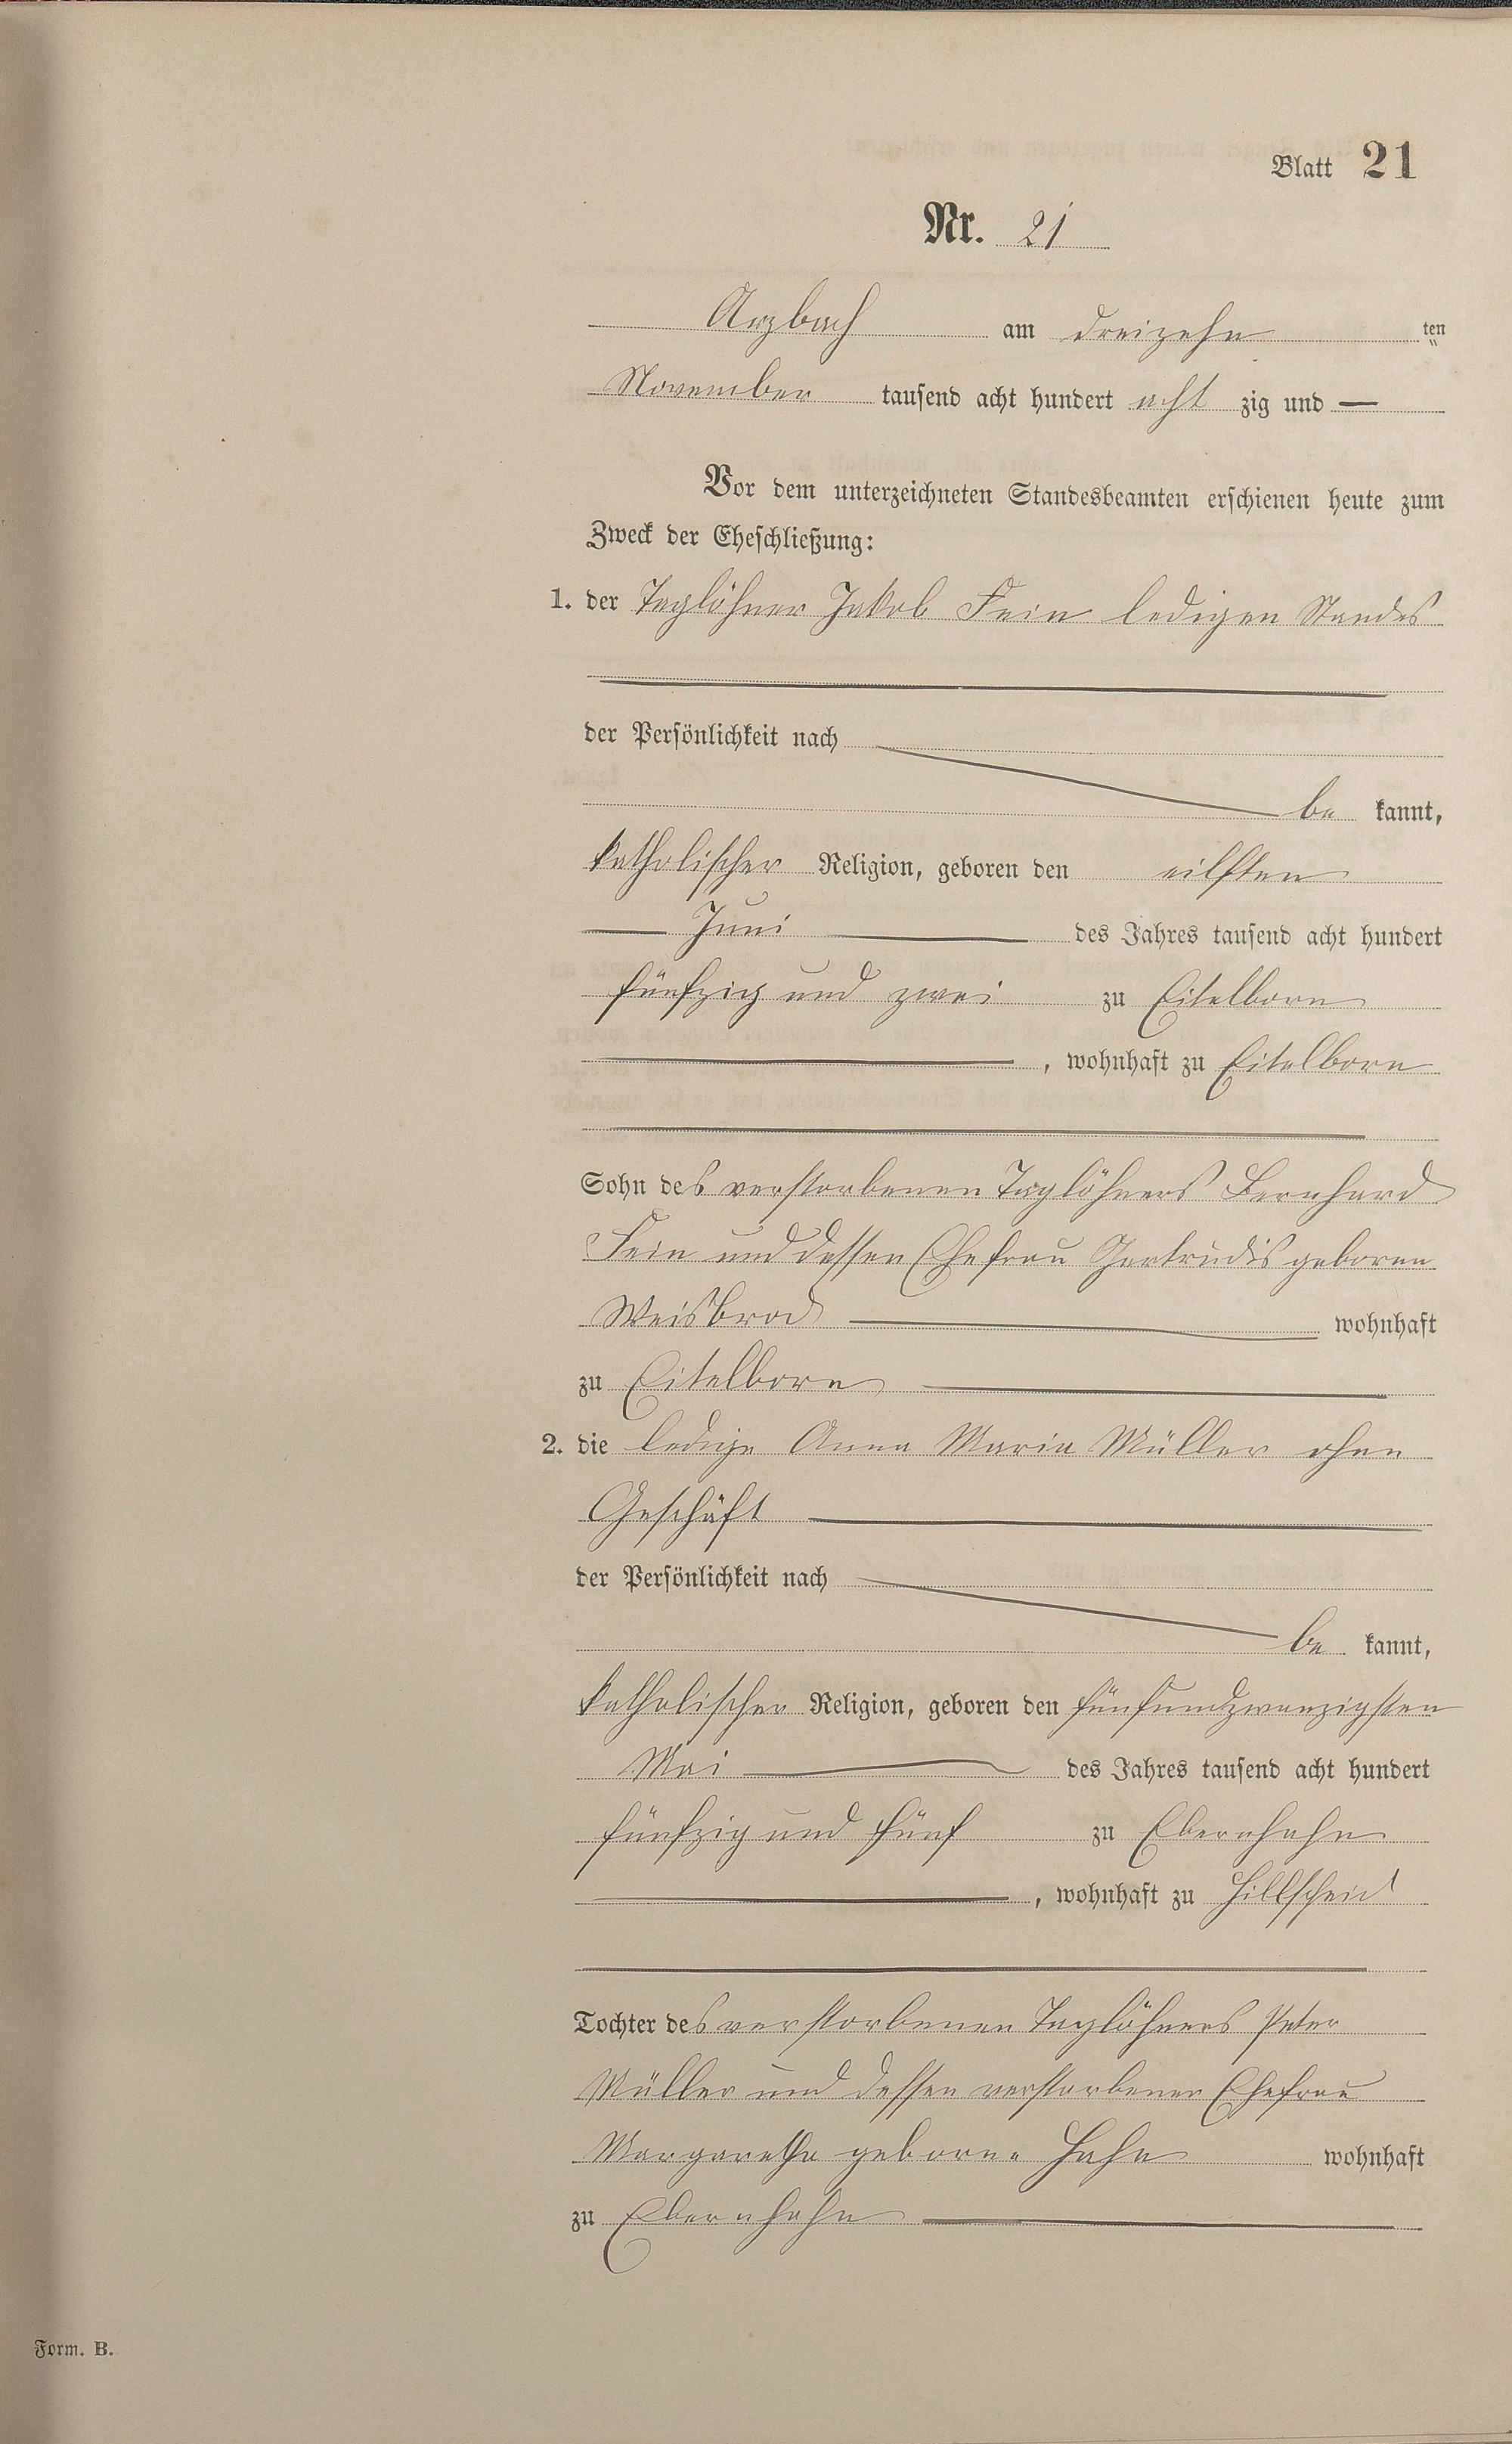 Blatt 21
Nr. 21
Arzbach am dreizehn ten
November tausend acht hundert acht zig und —
Vor dem unterzeichneten Standesbeamten erschienen heute zum
Zweck der Eheschließung:
1. der Taglöhner Jakob Fein ledigen Standes
der Persönlichkeit nach
be kannt,
katholischer Religion, geboren den eilften
Juni des Jahres tausend acht hundert
fünfzig und zwei zu Eitelborn
, wohnhaft zu Eitelborn
Sohn des verstorbenen Taglöhners Bernhard
Fein und dessen Ehefrau Gertrudis geboren
Weisbrod wohnhaft
zu Eitelborn
2. die ledige Anna Maria Müller ohne
Geschäft
der Persönlichkeit nach
be kannt,
katholischer Religion, geboren den fünfundzwanzigsten
Mai des Jahres tausend acht hundert
fünfzig und fünf zu Ebernhahn
, wohnhaft zu Hillscheid
Tochter des verstorbenen Taglöhners Peter
Müller und dessen verstorbener Ehefrau
Margaretha geborne Hahn wohnhaft
zu Ebernhahn
Form. B.